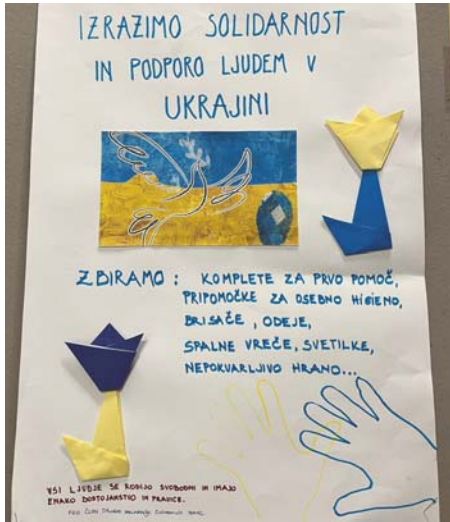 IZRAZIMO SOLIDARNOST
IN PODPORO LJUDEM V
UKRAJINI
ZBIRAMO: KOMPLETE ZA PRVO POMOČ,
PRIPOMOČKE ZA OSEBNO HIGIENO,
BRISAČE, ODEJE,
SPALNE VREČE, SVETILKE,
NEPOKVARLJIVO HRANO...
VSI LJUDJE SE RODIJO SVOBODNI IN IMAJO
ENAKO DOSTOJANSTVO IN PRAVICE.